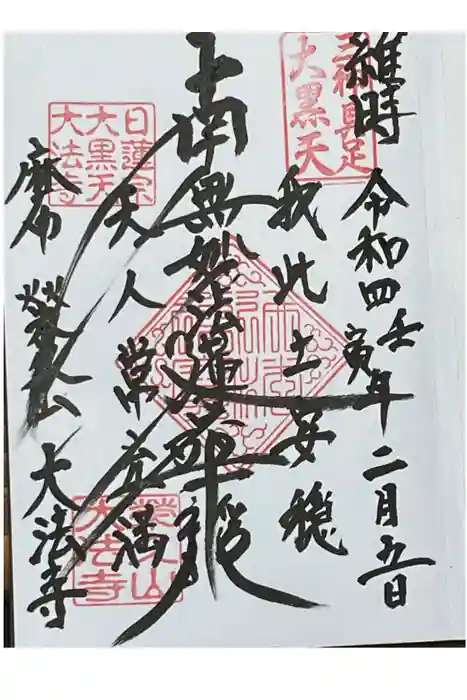 三神具足
大黒天
維時 令和四壬寅年 二月五日
我此土安穏
南無妙法蓮華経
天人常充満
日蓮宗
大黒天
大法寺
麻布 榮久山 大法寺
榮久山
大法寺